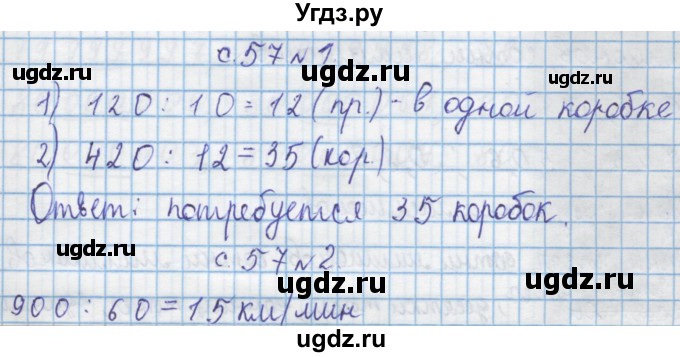 Угдз.ру
с.57 №1
1) 120 : 10 = 12 (пр.) - в одной коробке
2) 420 : 12 = 35 (кор)
Ответ: потребуется 35 коробок.
с.57 №2
900 : 60 = 15 км/мин
ugdz.ru
ugdz.ru
ugdz.ru
ugdz.ru
ugdz.ru
ugdz.ru
ugdz.ru
ugdz.ru
ugdz.ru
ugdz.ru
ugdz.ru